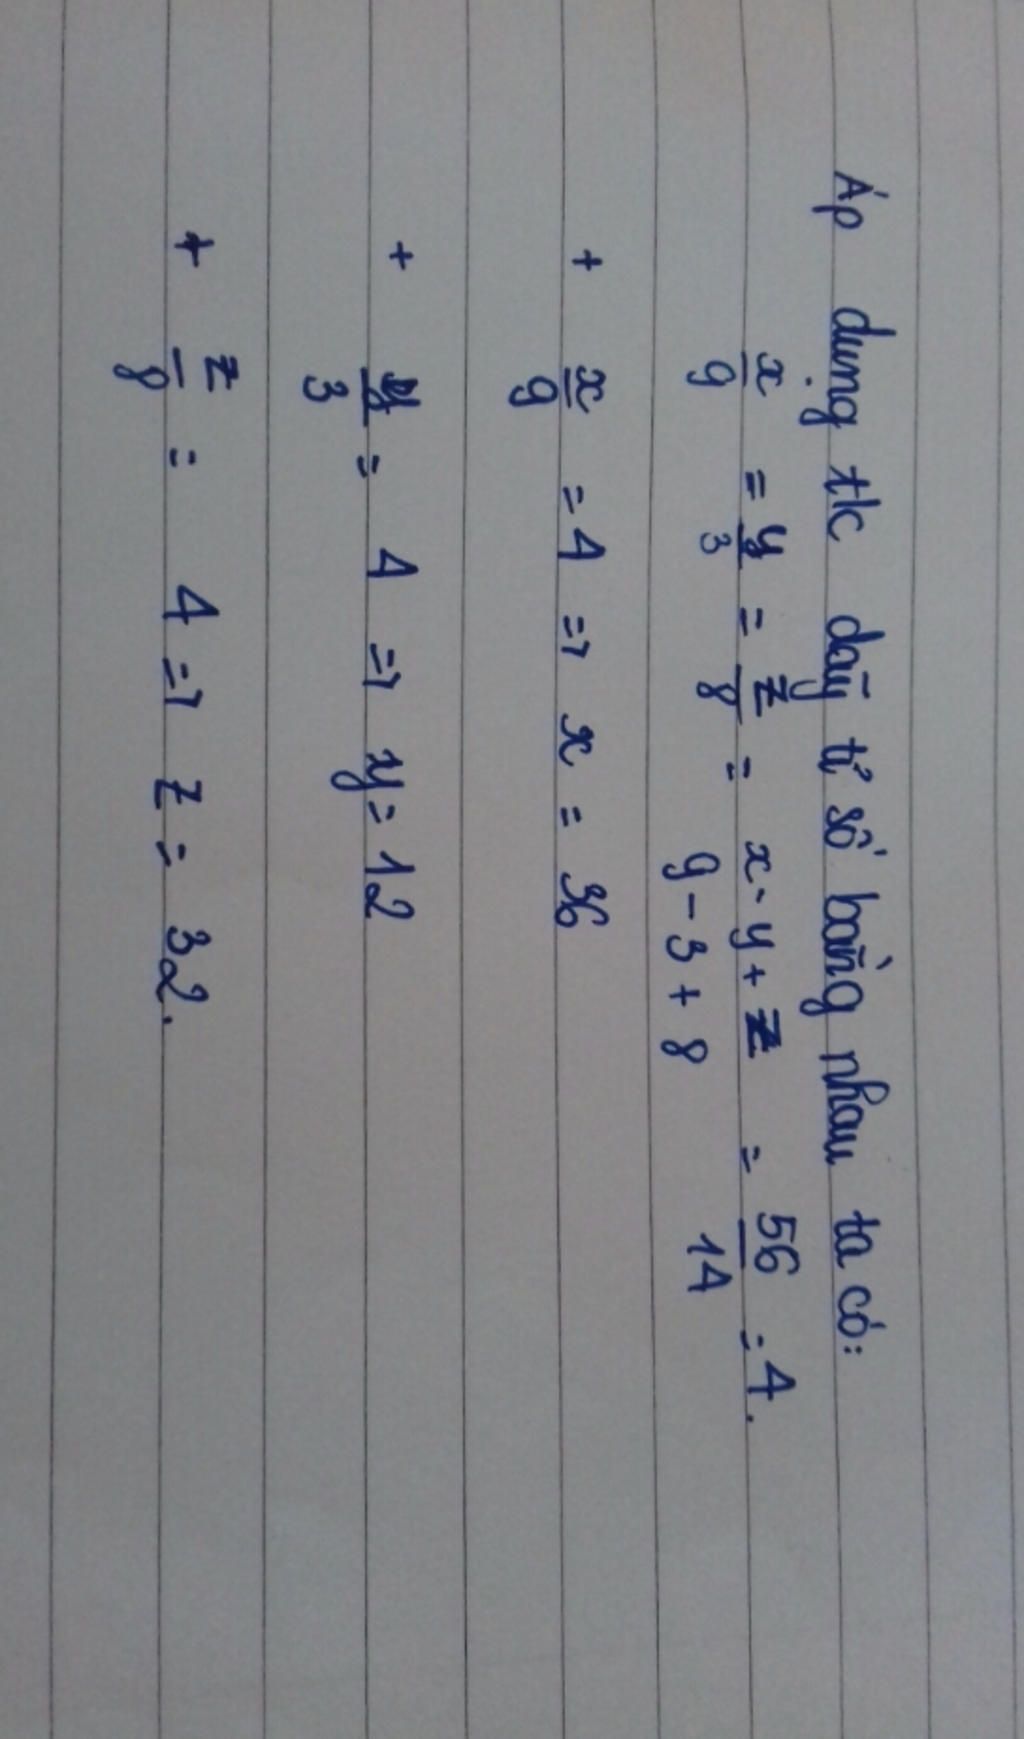 Áp dụng t/c dãy tỉ số bằng nhau ta có:
x/9 = y/3 = z/8 = (x - y + z)/(9 - 3 + 8) = 56/14 = 4.
+ x/9 = 4 => x = 36
+ y/3 = 4 => y = 12
+ z/8 = 4 => z = 32.